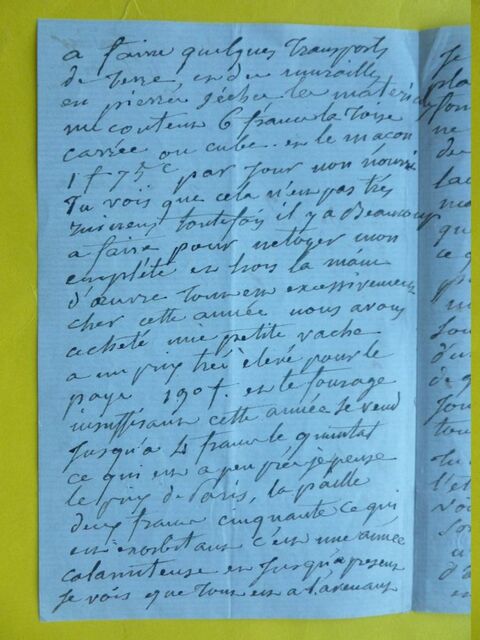 a faire quelques transports
de terre et des murailles
en pierre sèche les materiaux
me coutent 6 francs la toise
carrée ou cube et le maçon
1 f 75 c par jour non nourri
Tu vois que cela n'est pas très
toutefois il y a Beaucoup
a faire pour netoyer mon
et hors la main
d'œuvre tout est excessivement
cher cette année nous avons
acheté une petite vache
a un prix très élevé pour le
pays 190 f. et le fourage
insuffisant cette année se vend
Jusqu'a 4 francs le quintal
ce qui est a peu près je pense
le prix de Paris, la paille
deux francs cinquante ce qui
est exorbitant c'est une année
calamiteuse et Jusqu'a present
Je vois que tout est a l'avenant
Je
ne
de
que
ce q
tou